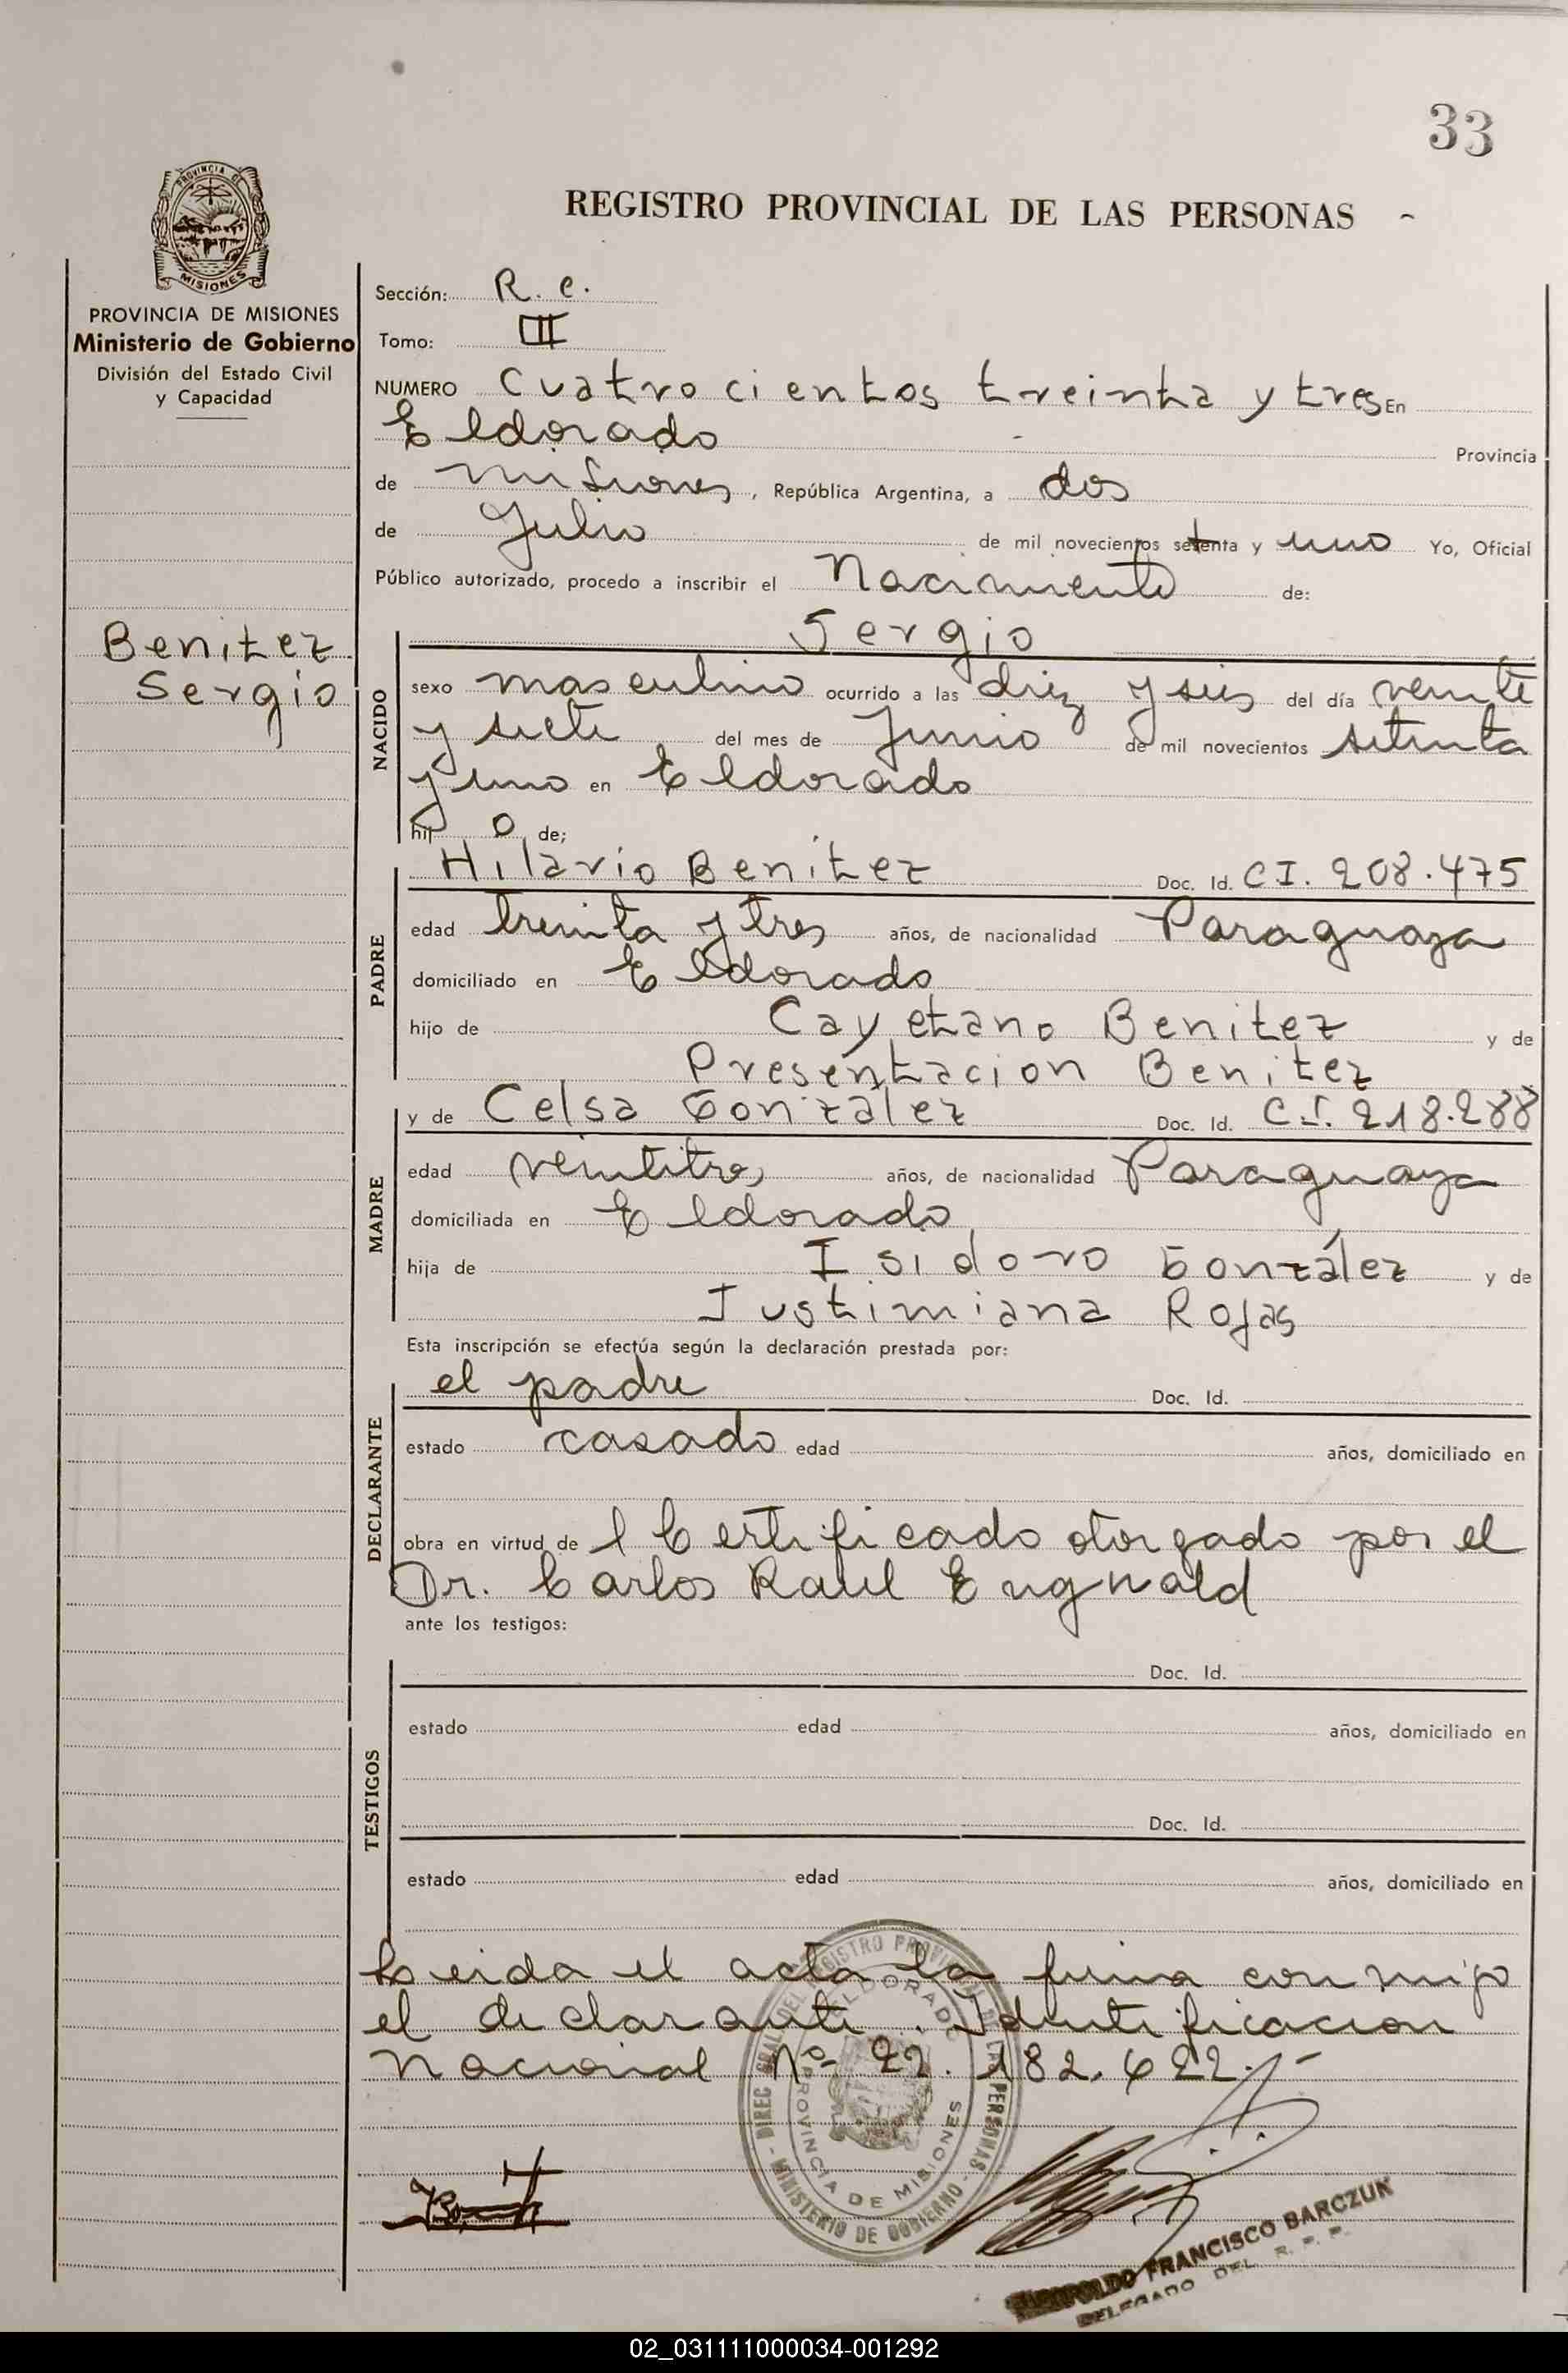 33
REGISTRO PROVINCIAL DE LAS PERSONAS
PROVINCIA DE MISIONES
Ministerio de Gobierno
División del Estado Civil
y Capacidad
Benitez
Sergio
Sección: R. e.
Tomo: III
NUMERO Cuatrocientos treinta y tres En
Eldorado Provincia
de Misiones, República Argentina, a dos
de Julio de mil novecientos setenta y uno Yo, Oficial
Público autorizado, procedo a inscribir el Nacimiento de:
Sergio
NACIDO
sexo masculino ocurrido a las diez y seis del día veinte
y siete del mes de Junio de mil novecientos setenta
y uno en Eldorado
hijo de;
PADRE
Hilario Benitez Doc. Id. CI. 208.475
edad treinta y tres años, de nacionalidad Paraguaya
domiciliado en Eldorado
hijo de Cayetano Benitez y de
Presentacion Benitez
MADRE
y de Celsa González Doc. Id. C.I. 218.288
edad veintitres años, de nacionalidad Paraguaya
domiciliada en Eldorado
hija de Isidoro González y de
Justimiana Rojas
Esta inscripción se efectúa según la declaración prestada por:
DECLARANTE
el padre Doc. Id.
estado casado edad años, domiciliado en
obra en virtud de l Certificado otorgado por el
Dr. Carlos Raul Engwald
ante los testigos:
TESTIGOS
Doc. Id.
estado edad años, domiciliado en
Doc. Id.
estado edad años, domiciliado en
Leida el acta la firma con migo
el declarante. Identificacion
Nacional Nº 22.182.622.-
DIREC GRAL DEL REGISTRO PROVINCIAL DE LAS PERSONAS - MINISTERIO DE GOBIERNO -
ELDORADO
PROVINCIA DE MISIONES
FRANCISCO BARCZUK
DELEGADO DEL R. P. P.
02_031111000034-001292